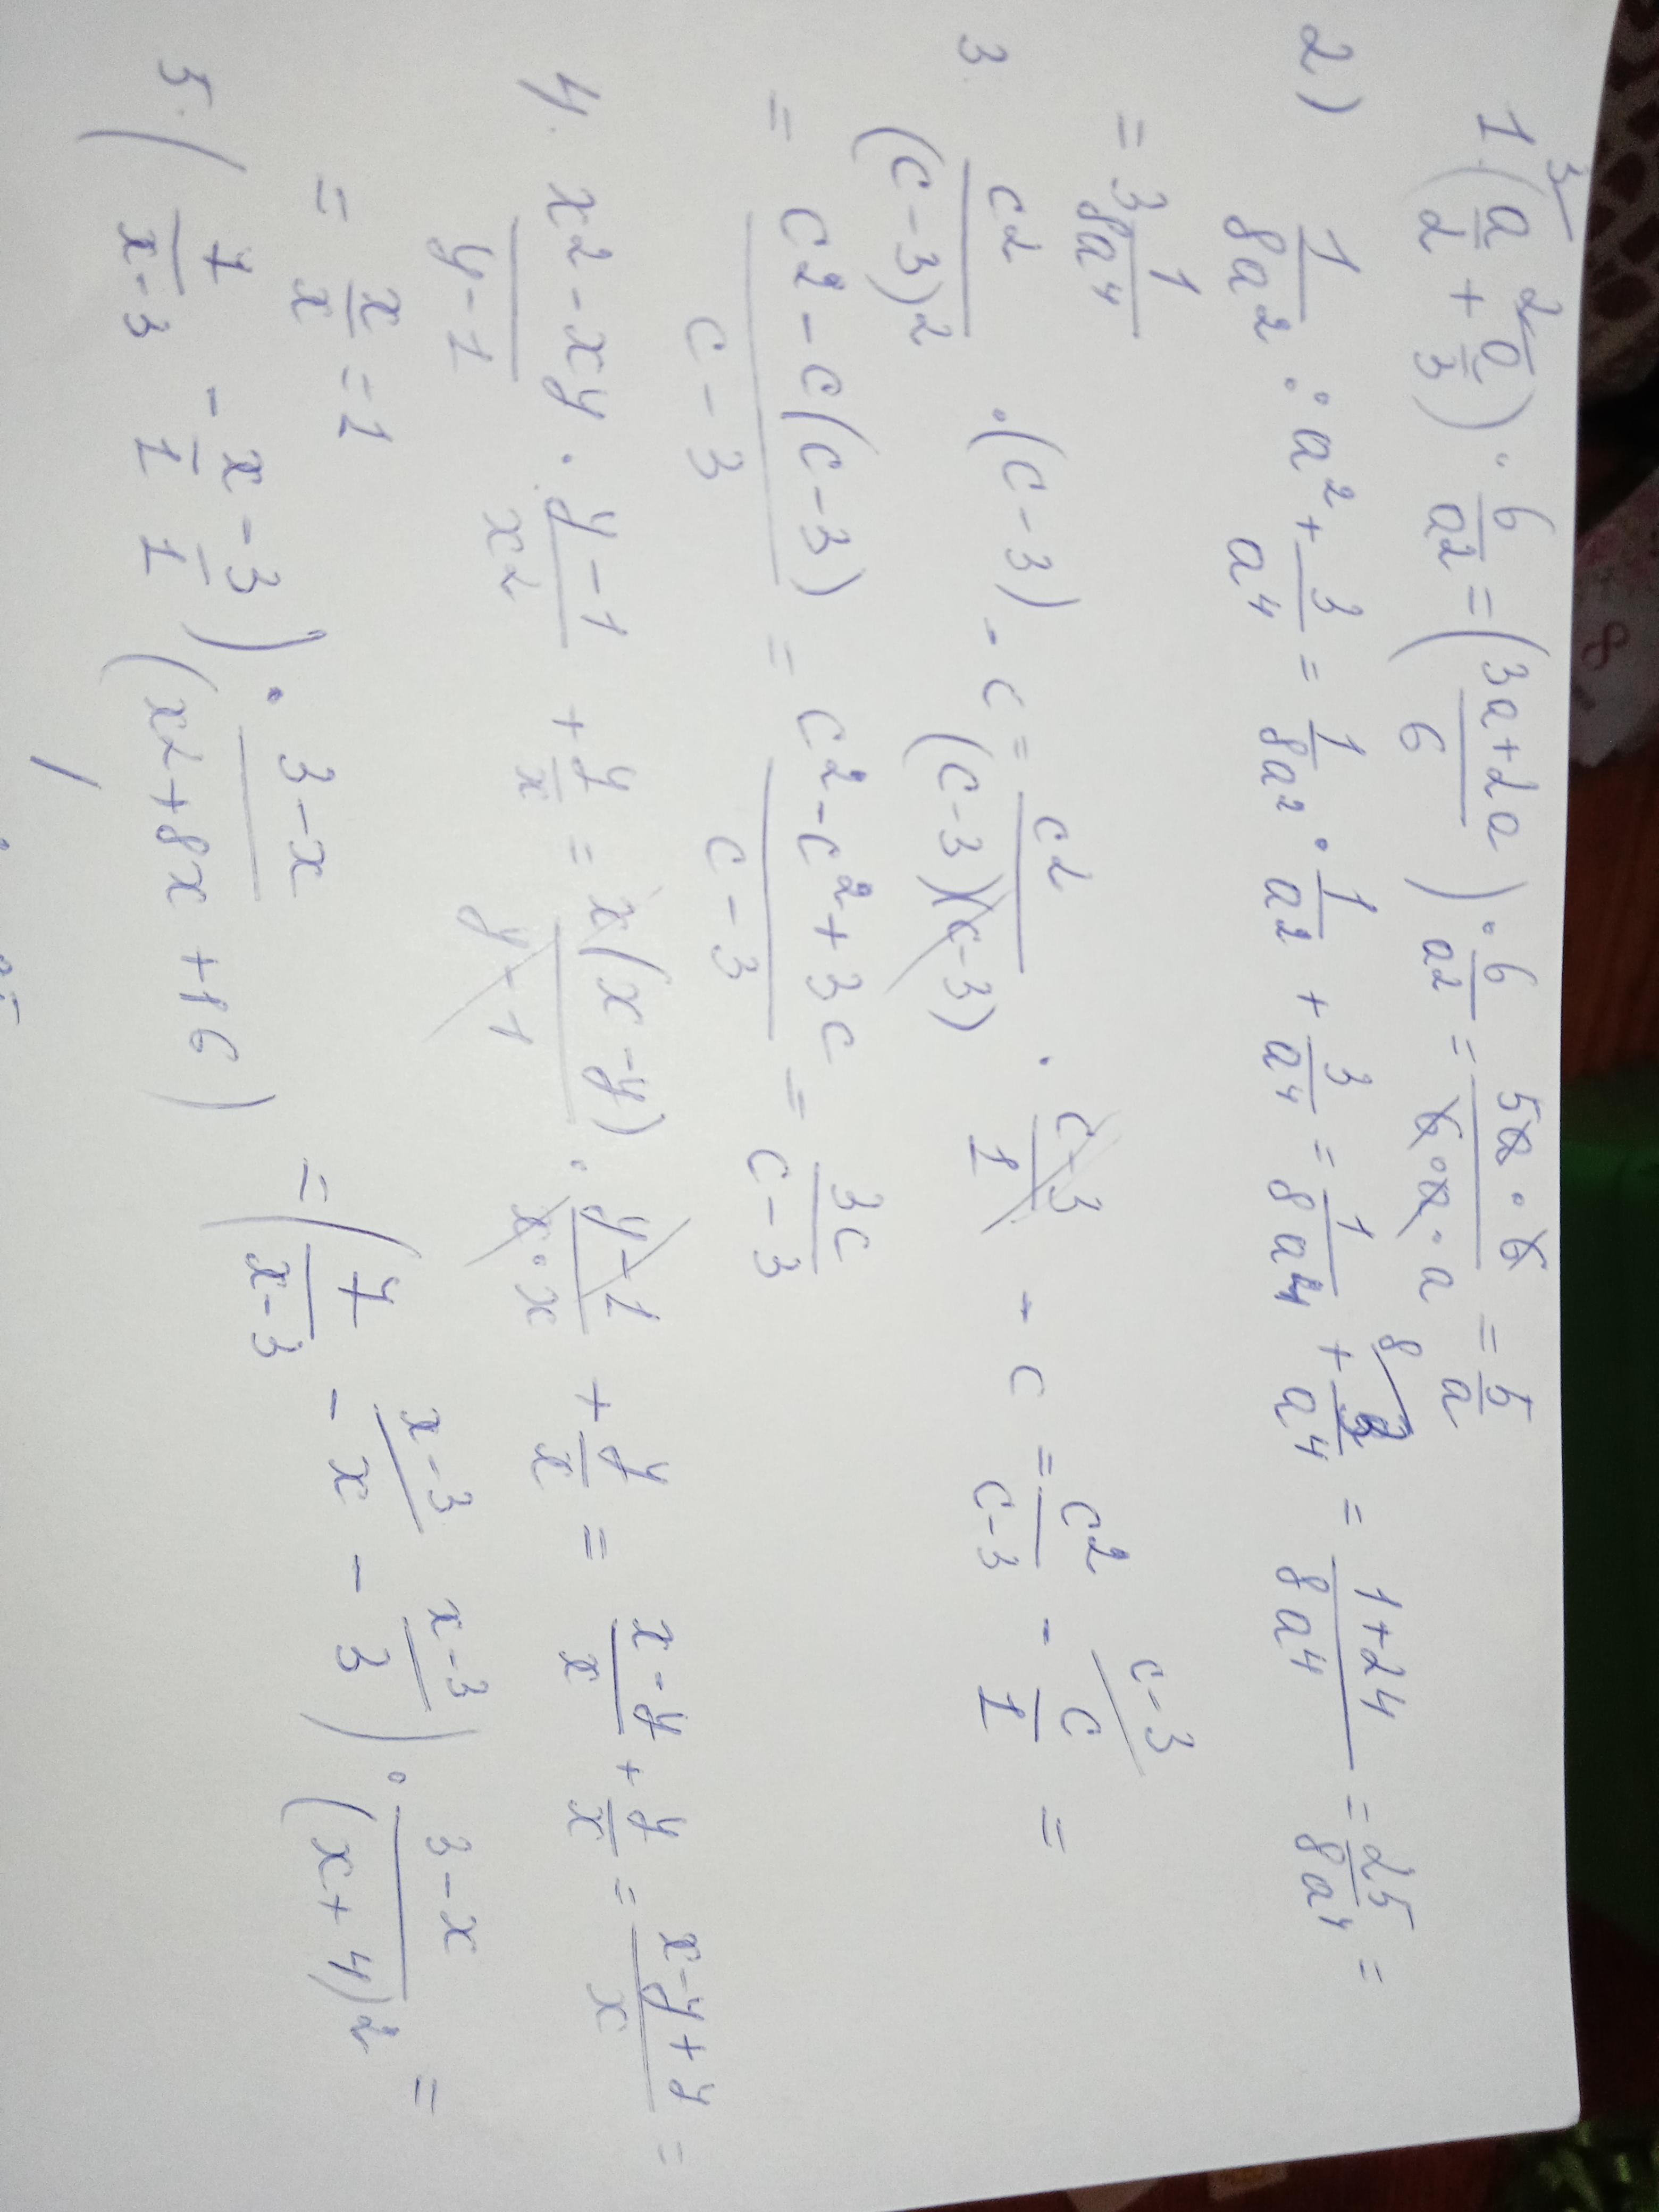 1. (a/2 + a/3) · 6/a2 = (3a+2a/6) · 6/a2 = 5a·6/6·a·a = 5/a
2) 1/8a2 : a2 + 3/a4 = 1/8a2 · 1/a2 + 3/a4 = 1/8a4 + 3/a4 = 1+24/8a4 = 25/8a4 =
= 3 1/8a4
3. c2/(c-3)2 · (c-3) - c = c2/(c-3)(c-3) · c-3/1 - c = c2/c-3 - c/1 =
= c2-c(c-3)/c-3 = c2-c2+3c/c-3 = 3c/c-3
4. x2-xy/y-1 · y-1/x2 + y/x = x(x-y)/y-1 · y-1/x·x + y/x = x-y/x + y/x = x-y+y/x =
= x/x = 1
5. (7/x-3 - x/1 - 3/1) · 3-x/(x2+8x+16) = (7/x-3 - x - 3) · 3-x/(x+4)2 =